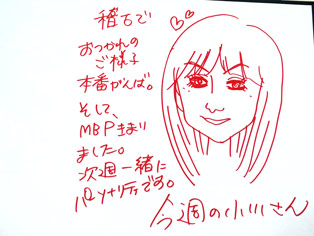 稽古で
おつかれの
ご様子
本番がんば。
そして、
MBPキまり
ました。
次週一緒に
パーソナリティです。
今週の小川さん